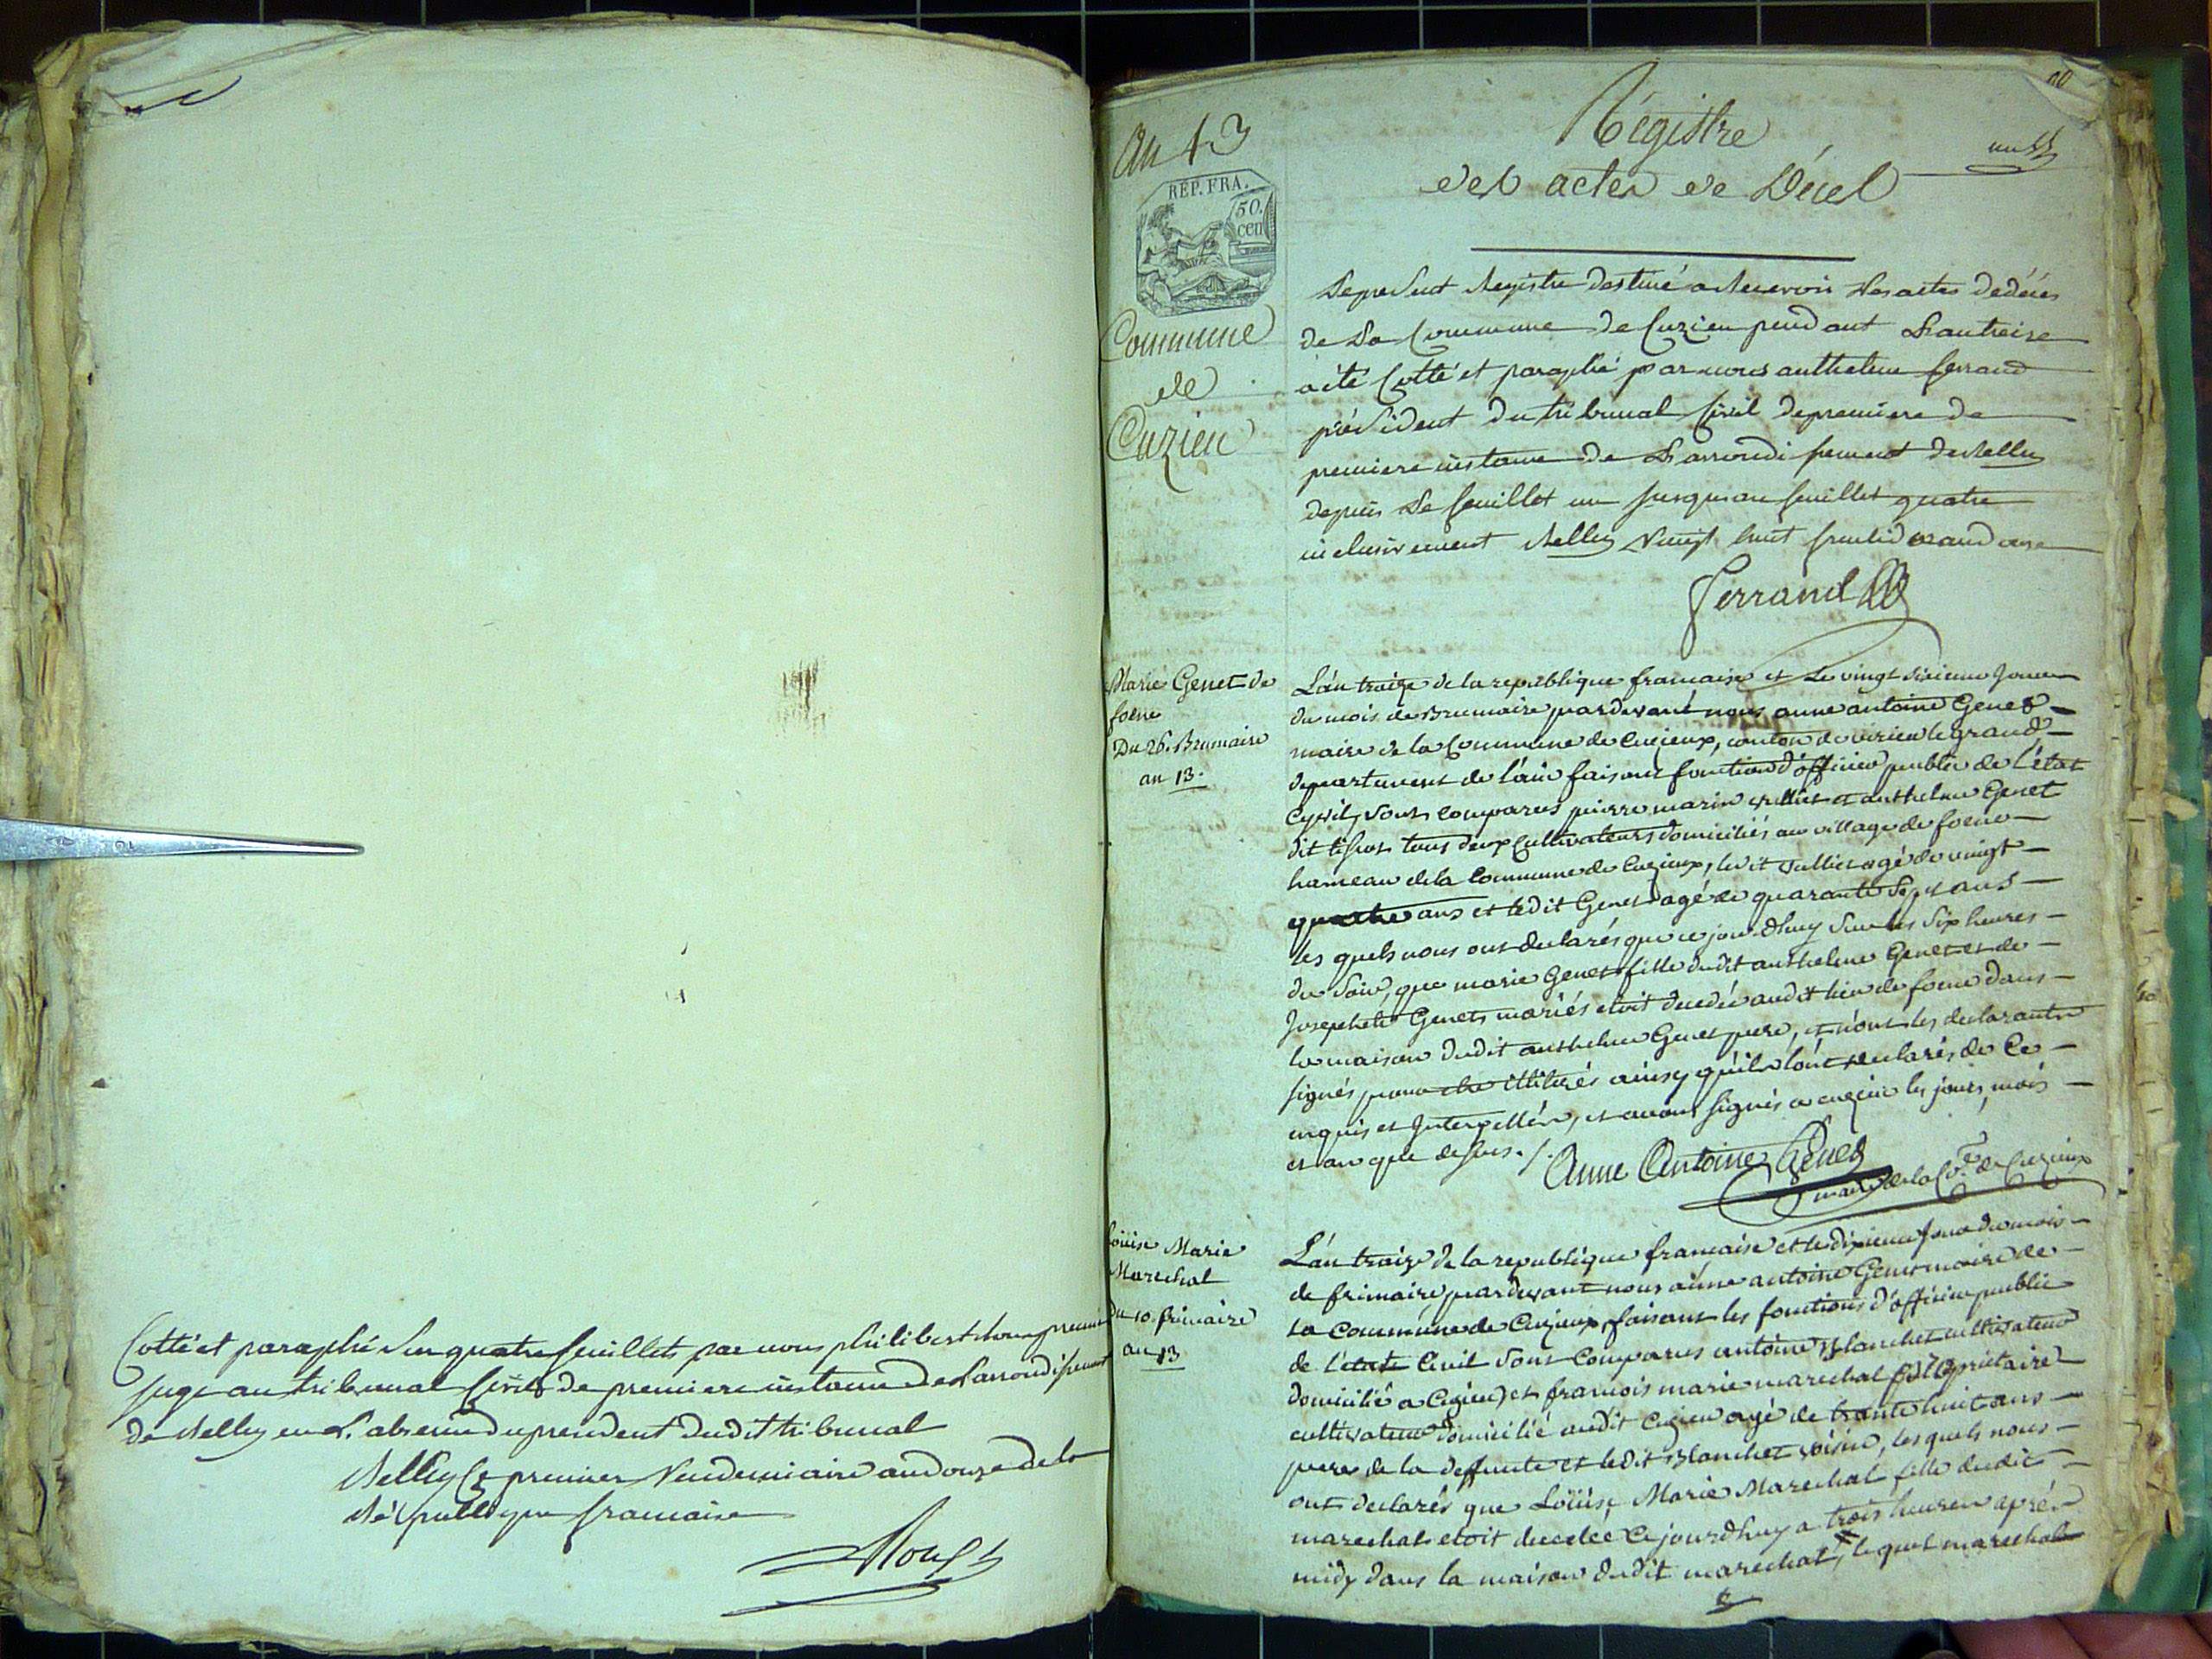 Cotté et paraphé Sur quatre feuillets par nous philibert premier
juge au tribunal Civil de premiere instance de L'arrondissement
de Belley en L'absence du president dudit tribunal
Belley le premier Vendemiaire an douze de la
République francaise
An 13
REP. FRA.
50.
cen
Commune
de
Cuzieu
Régistre
des actes de Décès
un
Le present Registre destiné a Recevoir Les actes de décès
de La Commune de Cuzieu pendant L'an treize
a été Cotté et paraphé par nous anthelme ferrand
président du tribunal Civil de premiere de
premiere instance de L'arrondissement de Belley
depuis Le feuillet un jusqu'au feuillet quatre
inclusivement Belley Vingt huit fructidor an douze
Ferrand
Marie Genet de
foene
Du 26. Brumaire
an 13.
L'an traize de la republique francaise et Le vingt sixieme Jour
du mois de Brumaire pardevant nous anne antoine Genet
maire de la Commune de Cuzieux, canton de virieu le grand
departement de l'ain faisant fonction d'officier public de l'état
Cyvil, Sont comparus pierre marin vullier et anthelme Genet
dit tous deux Cultivateurs domiciliés au village de foene
hameau de la Commune de Cuzieux, ledit vullier agé de vingt
quatre ans et ledit Genet agé de quarante Sept ans
les quels nous ont declarés que ce jourdhuy Sur les Six heures
du Soir, que marie Genet fille dudit anthelme Genet et de
Josephete Genet mariés etoit decedée audit lieu de foene dans
la maison dudit anthelme Genet pere, et n'ont les declarants
signés pour etre illitérés ainsy quils l'ont declarés de Ce
enquis et Interpellés, et avons signés a cuzieu les jours, mois
et an que dessus ./.
Anne Antoine Genet
maire de la Cne de Cuzieux
Loüise Marie
Marechal
Du 10. frimaire
an 13
L'an traize de la republique française et le dixieme jour du mois
de frimaire pardevant nous anne antoine Genet maire de
la Commune de Cuzieux, faisant les fonctions d'officier public
de l'etat Civil Sont Comparus antoine Blanchet cultivateur
domicilié a Cuzieu, et francois marie marechal propriétaire
cultivateur domicilié audit Cuzieu agé de trante huit ans
pere de la deffunte et ledit Blanchet voisin, les quels nous
ont declarés que Loüise Marie Marechal fille dudit
marechal etoit decedée Ce jourdhuy a trois heures aprés
midy dans la maison dudit marechal, le quel marechal